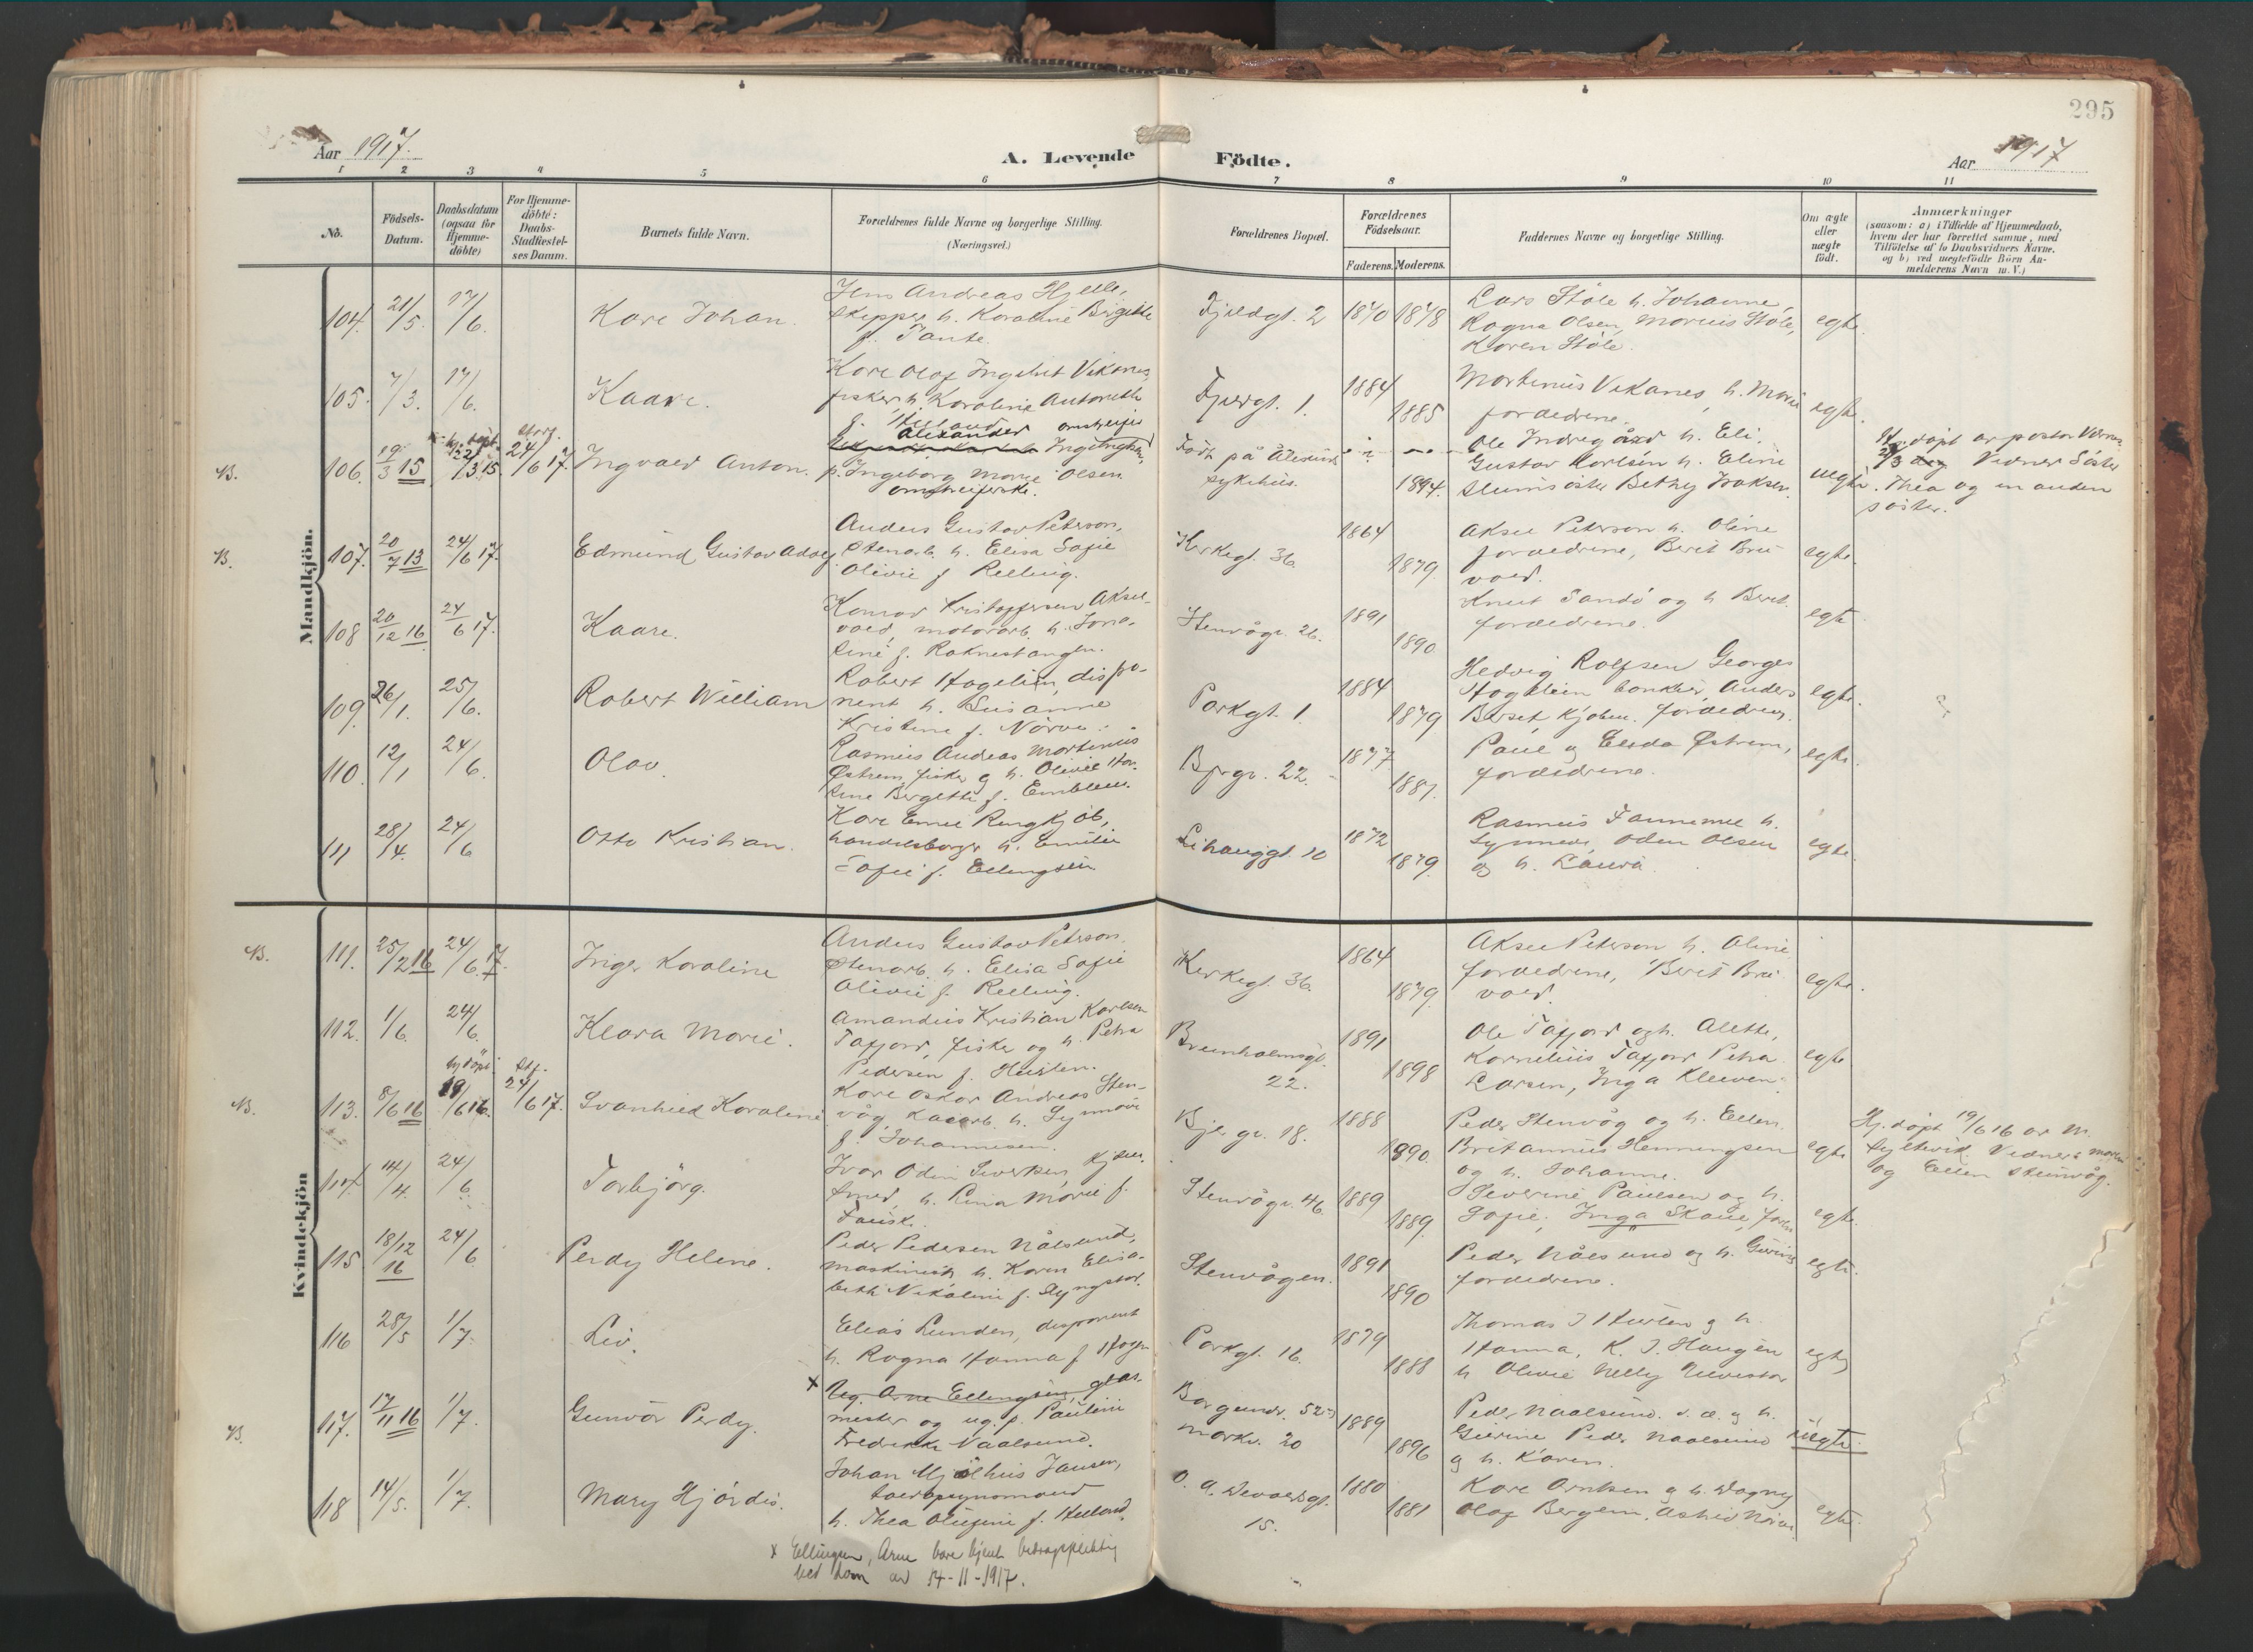 295
Aar 1917.
A. Levende Födte.
Aar 1917
1 2 3 4 5 6 7 8 9 10 11
No.
Födsels-
Datum.
Daabsdatum
(ogsaa for
Hjemme-
döbte)
For Hjemme-
döbte:
Daabs-
Stadfæstel-
ses Datum.
Barnets fulde Navn.
Forældrenes fulde Navne og borgerlige Stilling.
(Næringsvei.)
Forældrenes Bopæl.
Forældrenes
Födselsaar.
Faderens. Moderens.
Faddernes Navne og borgerlige Stilling.
Om ægte
eller
uægte
födt.
Anmærkninger
(saasom: a) i Tilfælde af Hjemmedaab,
hvem der har forrettet samme, med
Tilföielse af to Daabsvidners Navne.
og b) ved uegtefödte Börn An-
melderens Navn m. V.)
Mandkjön.
104. 21/5. 17/6. Kare Johan.
Jens Andreas Hjelle,
skipper h. Karoline Birgitte
f. Tante.
Fjeldgt. 2 1870 1878
Lars Støle h. Johanne,
Ragna Olsen, Marius Støle,
Karen Støle.
egte.
105. 7/3. 17/6. Kaare.
Kare Olaf Ingebrit Vikanes,
fisker h. Karoline Antonette
Fjergt. 1. 1884 1885
Martinus Vikanes, h. Marie
foreldrene.
egte.
B. 106. 19/3 15 hj. döpt 22/3 15. 24/6 17. Ingvald Anton.
Alexander omstreifer
p. Ingeborg Marie Olsen
omstreiferske.
Født på Ålesund
sykehus.
1894.
Ole Indregård h. Eli.
Gustav Karlsen h. Eline
slumsøster Bethy Isaksen.
uegte.
Vidner Søster
Thea og en anden
søster.
B. 107. 20/7 13 24/6 17. Edmund Gustav Adolf
Anders Gustav Peterson,
Stenarb. h. Elisa Sofie
Olivie f. Relling.
Kirkegt. 36. 1864 1879.
Aksel Peterson h. Oline
foreldrene, Berit Bru-
vold.
egte.
108 20/12 16 24/6 17. Kaare.
Konrad Kristoffersen Aksel-
vold, motorarb. h. Jona-
sine f. Raknestangen.
Stenvågv. 26. 1891 1890.
Knut Sandø og h. Berit.
foreldrene.
egte
109. 26/1. 25/6. Robert William
Robert Hagelin, dispo-
nent h. Susanne
Kristine f. Nörve.
Parkgt. 1. 1884 1879
Hedvig Rolfsen Georges
Hagelin bankier, Anders
Barset kjøbm. foreldrene.
egte.
110. 12/1 24/6. Olav.
Rasmus Andreas Martinus
Østrem, fisker og h. Olivie Han-
sine Bergitte f. Emblem.
Bjrgv. 22. 1877 1887.
Paul og Elida Østrem,
foreldrene.
egte.
111 28/4. 24/6 Otto Kristian.
Kare Emil Ringkjöb,
handelsborger h. Emilie
Sofie f. Ellingsen.
Lihauggt. 10 1872 1879.
Rasmus Fannemel h.
Synneve, Oden Olsen
og h. Laura.
egte.
Kvindekjön
B. 111. 25/2 16 24/6. 17. Inger Karoline
Anders Gustav Peterson.
Stenarb. h. Elisa Sofie
Olivie f. Relling.
Kirkegt. 36. 1864 1879.
Aksel Peterson h. Oline
foreldrene, Berit Bru-
vold.
egte.
112. 1/6. 24/6. Klara Marie.
Amandus Kristian Karlsen
Tafjord, fisker og h. Petra
Pedersen f. Huslen.
Brunholmsgt.
22. 1891 1898
Ole Tafjord og h. Alette,
Kornelius Tafjord Petra
Larsen, Inga Kleiven.
egte
B. 113. 8/6 16 hj döpt 19/6 16. Stf. 24/6 17. Svanhild Karoline
Kare Oskar Andreas Sten-
våg, kaiarb. h. Synnøve
f. Johannesen.
Bjergv. 18. 1888 1890.
Peder Stenvåg og h. Ellen.
Britannius Henningsen
og h. Johanne.
egte
Hj. döpt 19/6 16 av M.
Fyltevik. Vidner
og Ellen Stenvåg.
114. 14/4. 24/6. Torbjörg.
Ivar Odin Sivertsen,
smed, h. Lina Marie f.
Fauske.
Stenvågv. 46. 1889 1889.
Severine Paulsen og h.
Sofie, Inga Skaue,
egte.
115. 18/12 16 24/6. Perdy Helene.
Peder Pedersen Nålsund,
maskinist h. Karen Elisa-
beth Nikoline f. Slyngstad.
Stenvågen. 1891 1890
Peder Nålsund og h. Gurine
foreldrene.
egte.
116 28/5 1/7. Liv.
Elias Lunden, disponent
h. Ragna Hanna f. Hagen
Parkgt. 16. 1879 1888
Thomas J Huslen og h.
Hanna, K. J. Haugen
h Olivie Nelly Ulvestad
egte
B. 117. 17/11 16 1/7. Gunvor Perdy.
x Ug. Arne Ellingsen, glas-
mester og ug. p. Pauline
Fredrikke Naalsund.
Borgundv. 52
Markv. 20 1889 1896
Peder Naalsund. s. æ. og h.
Gurine Peder Naalsund
og h. Karen.
uegte.
118 14/5. 1/7. Mary Hjördis.
Johan Mjølhus Jansen,
h. Thea Olufine f. Helland.
O. A. Devoldsgt.
15. 1880 1881
Kare Orntsen og h. Dagny
Olaf Bergem, Astrid Nörve.
egte.
x Ellingsen, Arne bare kjent bidragspliktig
ved dom av 14-11-1917.